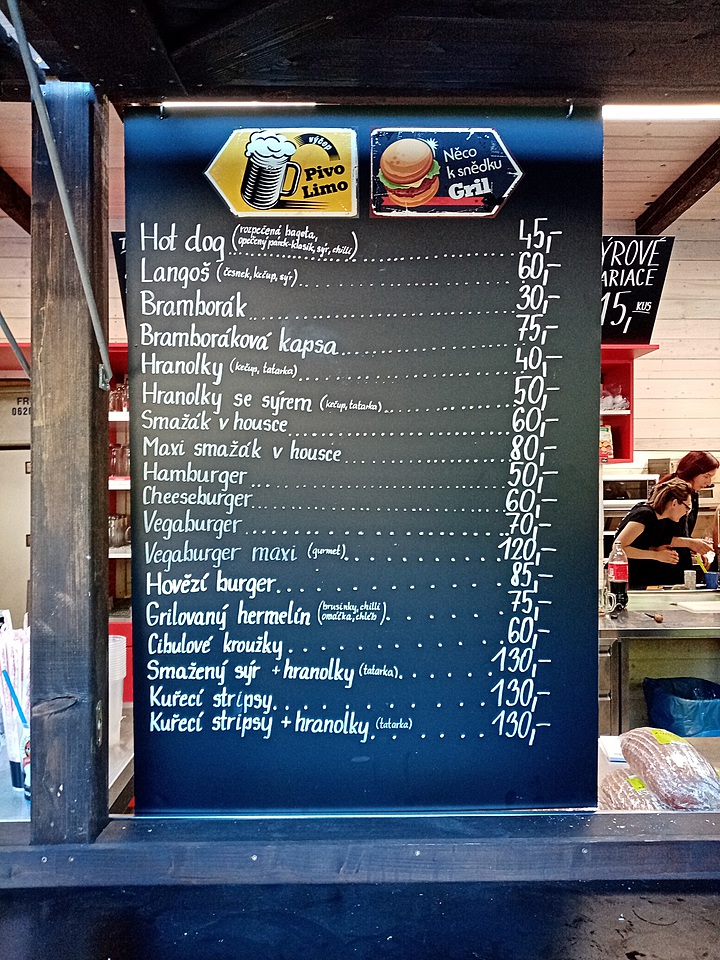 výčep
Pivo
Limo
Něco
k snědku
Gril
Hot dog (rozpečená bageta, opečený párek-klasik, sýr, chilli) 45,-
Langoš (česnek, kečup, sýr) 60,-
Bramborák 30,-
Bramboráková kapsa 75,-
Hranolky (kečup, tatarka) 40,-
Hranolky se sýrem (kečup, tatarka) 50,-
Smažák v housce 60,-
Maxi smažák v housce 80,-
Hamburger 50,-
Cheeseburger 60,-
Vegaburger 70,-
Vegaburger maxi (gurmet) 120,-
Hovězí burger 85,-
Grilovaný hermelín (brusinky, chilli omáčka, chléb) 75,-
Cibulové kroužky 60,-
Smažený sýr + hranolky (tatarka) 130,-
Kuřecí stripsy 130,-
Kuřecí stripsy + hranolky (tatarka) 130,-
ÝROVÉ
ARIACE
15,- KUS
FR
062